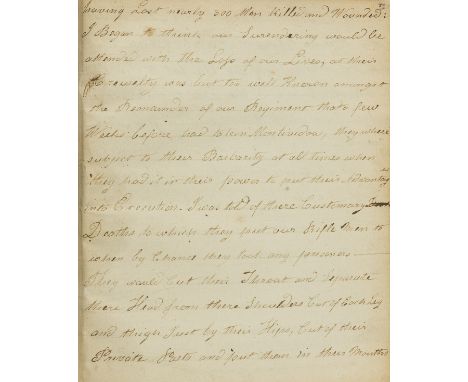 having Lost nearly 300 Men Killed and Wounded:
I Began to think our Surendering would be
attended with the Loss of our Lives, as their
Crewelty was but too well Known amongst
the Remainder of our Regiment that a few
Weeks before had taken Montivedou, they where
subject to their Barbarity at all times when
they had it in their power to put their Advantag
into Execution. I was told of there Customary
Deaths to which they put our Rifle Men to
when by Chance they took any prisoners
They would Cut their Throat and Separate
there Head from there Shoulders Cut of Each leg
and thigh Just by their Hips, Cut of their
Private Parts and put them in their Mouths